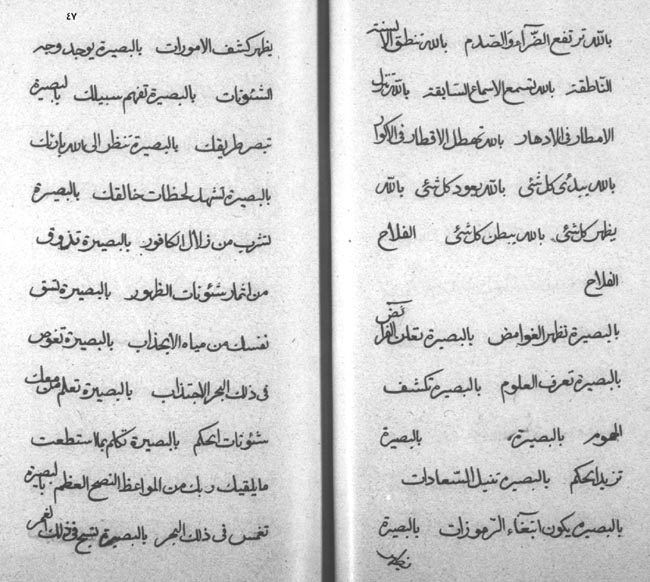 بالله ترتفع الضرآء والصدم بالله تنطق الالسنة
الناطقة بالله تسمع الاسماع السابقة بالله تنزل
الامطار فى الادهار بالله تهطل الاقطار فى الاكوار
بالله يبدئ كل شئ بالله يعود كل شئ بالله
يظهر كل شئ بالله يبطن كل شئ الفلاح
الفلاح
بالبصيرة تظهر الغوامض بالبصيرة تعلن الفرائض
بالبصيرة تعرف العلوم بالبصيرة تكشف
الهموم بالبصيرة بالبصيرة
تزيد الحكم بالبصيرة تنيل السعادات
بالبصيرة يكون ابتغاء الرموزات بالبصيرة
٤٧
يظهر كشف الامورات بالبصيرة يوجد وجه
الشئونات بالبصيرة تفهم سبيلك بالبصيرة
تبصر طريقك بالبصيرة تنظر الى الله باذنك
بالبصيرة تشهد لحظات خالقك بالبصيرة
تشرب من زلال الكافور بالبصيرة تذوق
من اثمار شئونات الظهور بالبصيرة تسقى
نفسك من مياه الانجذاب بالبصيرة تغوص
فى ذلك البحر الاجتذاب بالبصيرة تعلم من
شئونات الحكم بالبصيرة تكلم بما استطعت
ما يلقيك ربك من المواعظ النصح العظم بالبصيرة
تغمس فى ذلك البحر بالبصيرة تسبح فى ذلك الغمر